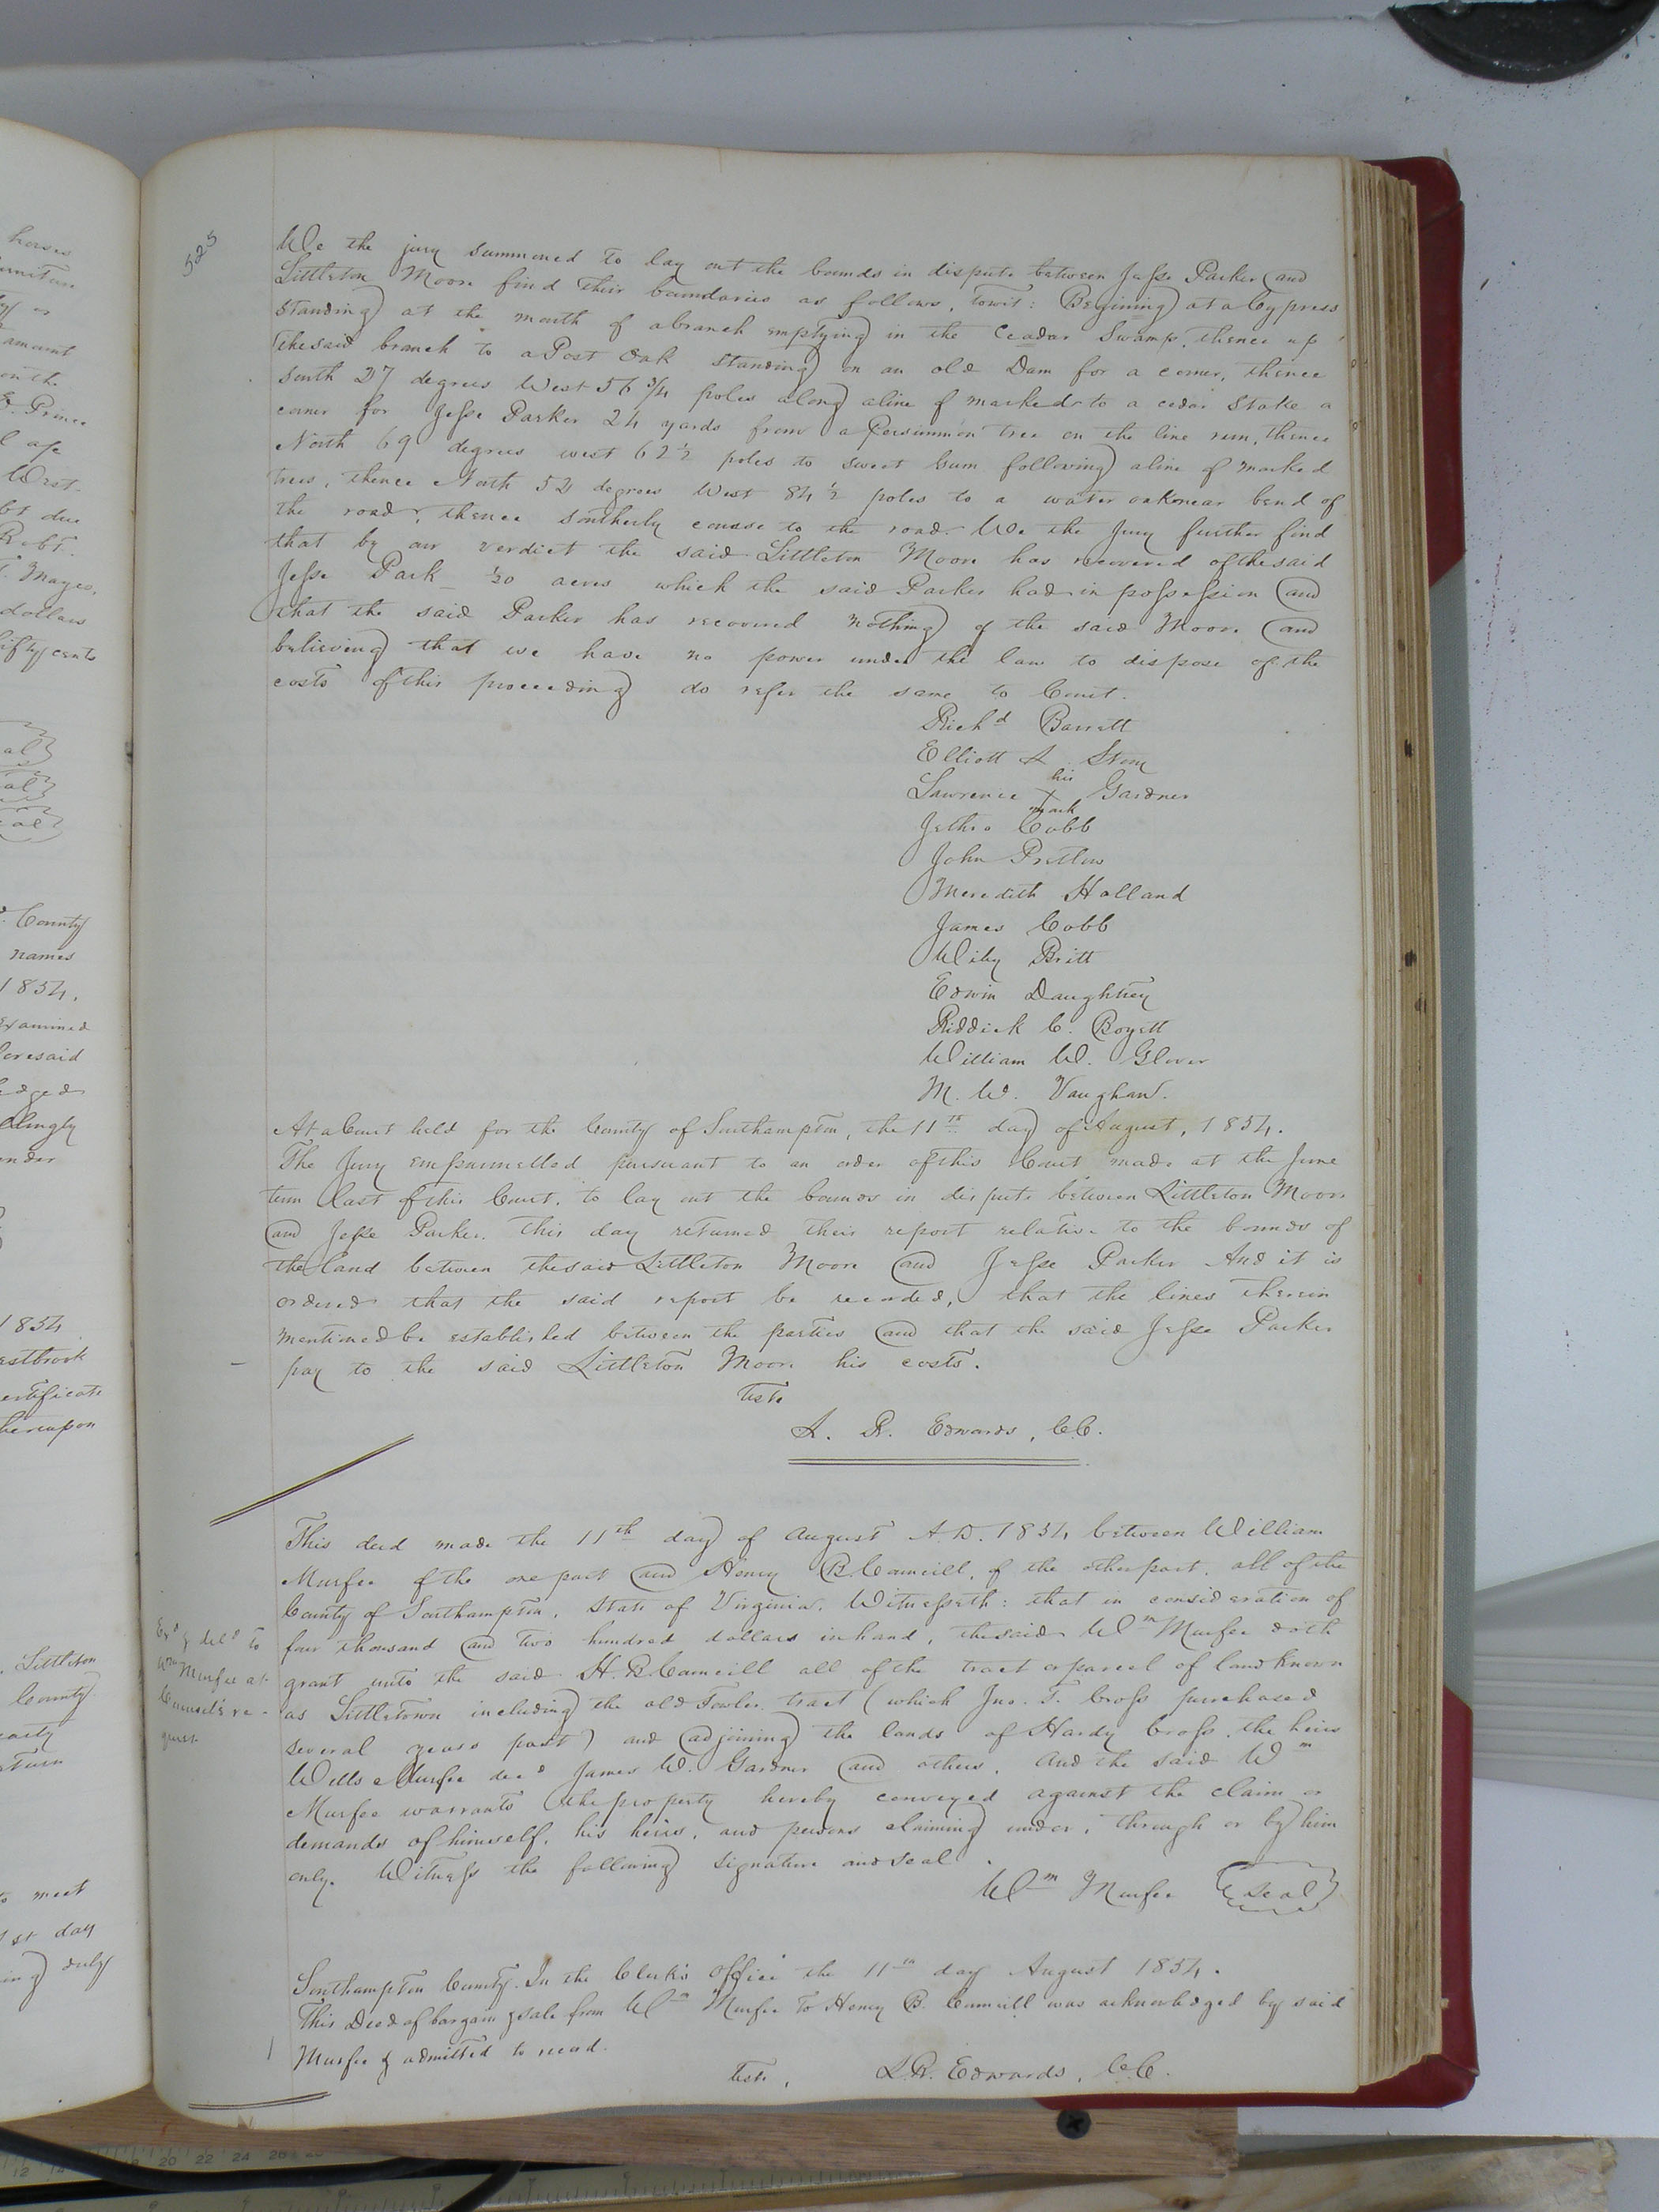 523
We the jury summoned to lay out the bounds in dispute between Jesse Parker and
Littleton Moore find their boundaries as follows, towit: Begining at a Cypress
standing at the mouth of a branch emptying in the Ceadar Swamp, thence up
the said branch to a Post Oak standing on an old Dam for a corner, thence
South 37 degrees West 56 3/4 poles along a line of marked to a cedar Stake a
corner for Jesse Parker 24 yards from a Persimmon tree on the line run, thence
North 69 degrees west 62 1/2 poles to sweet Gum following a line of marked
trees, thence North 52 degrees West 84 1/2 poles to a water oak near bend of
the road, thence southerly course to the road. We the Jury further find
that by our verdict the said Littleton Moore has recovered of the said
Jesse Park 1/20 acres which the said Parker had in possession and
that the said Parker has recovered nothing of the said Moore and
believing that we have no power under the law to dispose of the
costs of this proceeding do refer the same to Court.
Richd Barrett
Elliott L Story
Lawrence his X mark Gardner
Jethro Cobb
John Pretlow
Meredith Holland
James Cobb
Wiley Britt
Edwin Daughtrey
Riddick C. Boyett
William W. Glover
M. W. Vaughan.
At a Court held for the County of Southampton, the 11th day of August, 1854.
The Jury empannelled pursuant to an order of this Court made at the June
term last of this Court, to lay out the bounds in dispute between Littleton Moore
and Jesse Parker, this day returned their report relative to the bounds of
the land between the said Littleton Moore and Jesse Parker And it is
ordered that the said report be recorded, that the lines therein
mentioned be established between the parties and that the said Jesse Parker
pay to the said Littleton Moore his costs.
Teste
L. R. Edwards, C.C.
This deed made the 11th day of August A.D. 1854 between William
Murfee of the one part and Henry B. Camrill, of the other part, all of the
County of Southampton, State of Virginia. Witnesseth: that in consideration of
four thousand and two hundred dollars in hand, the said Wm Murfee doth
grant unto the said H. B. Camrill all of the tract or parcel of land known
as Littletown including the old Fowler tract (which Jno. T. Cross purchased
several years past) and adjoining the lands of Hardy Cross, the heirs
Wells Murfee decd James W. Gardner and others. And the said Wm
Murfee warrants the property hereby conveyed against the claim or
demands of himself, his heirs, and persons claiming under, through or by him
only. Witness the following signature and seal.
Exd & deld to
Wm Murfee at
re-
quest
Wm Murfee Seal
Southampton County. In the Clerk's Office the 11th day August 1854.
This Deed of bargain & sale from Wm Murfee to Henry B. Camrill was acknowledged by said
Murfee & admitted to record.
Teste, L. R. Edwards, C.C.